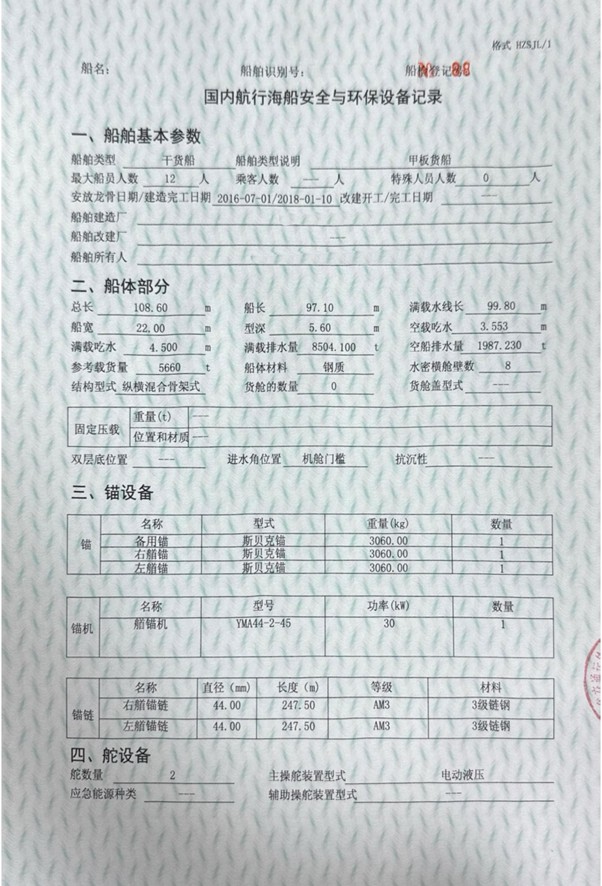 格式 HZSJL/1
船名： 船舶识别号： 船检登记号
国内航行海船安全与环保设备记录
一、船舶基本参数
船舶类型 干货船 船舶类型说明 甲板货船
最大船员人数 12 人 乘客人数 --- 人 特殊人员人数 0 人
安放龙骨日期/建造完工日期 2016-07-01/2018-01-10 改建开工/完工日期 ---
船舶建造厂
船舶改建厂 ---
船舶所有人
二、船体部分
总长 108.60 m 船长 97.10 m 满载水线长 99.80 m
船宽 22.00 m 型深 5.60 m 空载吃水 3.553 m
满载吃水 4.500 m 满载排水量 8504.100 t 空船排水量 1987.230 t
参考载货量 5660 t 船体材料 钢质 水密横舱壁数 8
结构型式 纵横混合骨架式 货舱的数量 0 货舱盖型式 ---
固定压载 重量(t) ---
位置和材质 ---
双层底位置 --- 进水角位置 机舱门槛 抗沉性 ---
三、锚设备
锚 名称 型式 重量(kg) 数量
备用锚 斯贝克锚 3060.00 1
右艏锚 斯贝克锚 3060.00 1
左艏锚 斯贝克锚 3060.00 1
锚机 名称 型号 功率(kW) 数量
艏锚机 YMA44-2-45 30 1
锚链 名称 直径 (mm) 长度 (m) 等级 材料
右艏锚链 44.00 247.50 AM3 3级链钢
左艏锚链 44.00 247.50 AM3 3级链钢
四、舵设备
舵数量 2 主操舵装置型式 电动液压
应急能源种类 --- 辅助操舵装置型式 ---